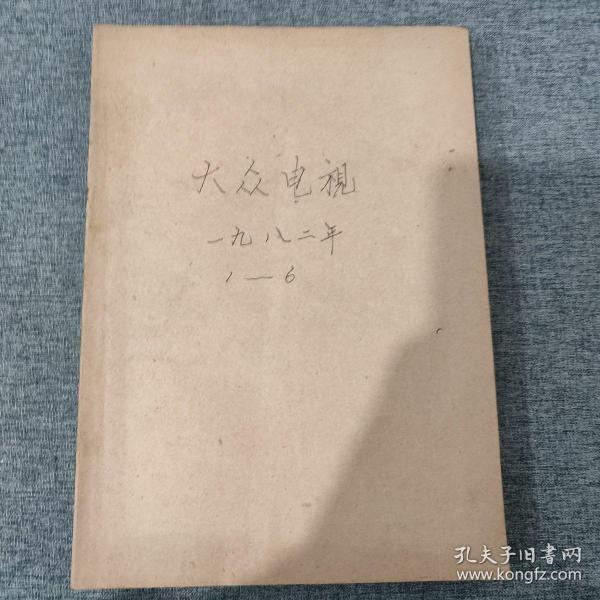 大众电視
一九八二年
1—6
孔夫子旧書网
www.kongfz.com